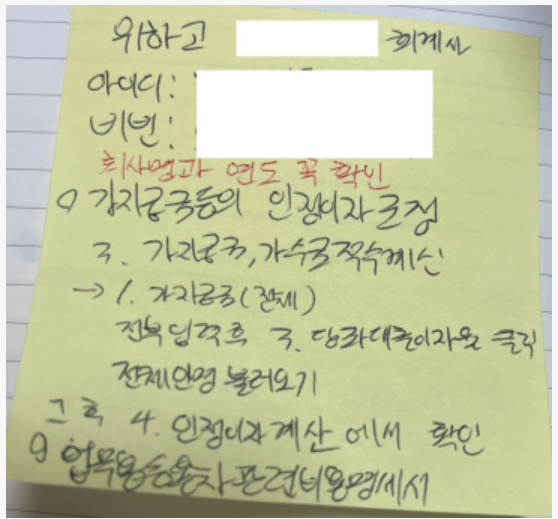 위하고 회계사
아이디:
비번:
회사명과 연도 꼭 확인
9 가지급금등의 인정이자조정
3. 가지급금,가수금적수계산
→ 1. 가지급금(전체)
전부입력후 3. 당좌대출이자율 클릭
전체인명 불러오기
그 후 4. 인정이자계산 에서 확인
9 업무용승용차관련비용명세서